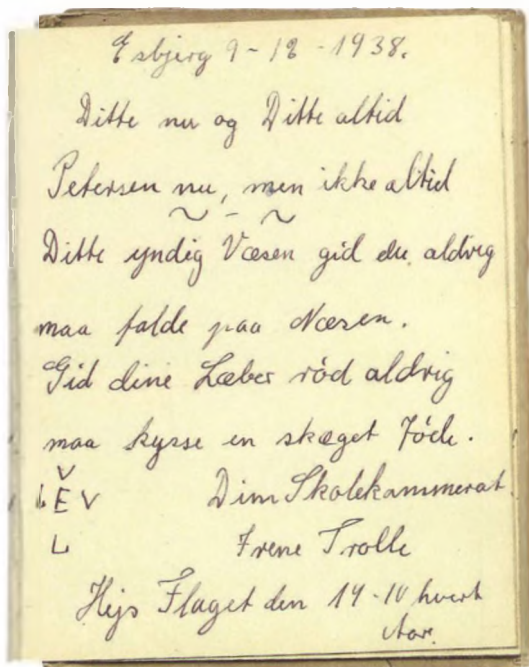 Esbjerg 9-12-1938.
Ditte nu og Ditte altid
Petersen nu, men ikke altid
~ - ~
Ditte yndig Væsen gid du aldrig
maa falde paa Næsen.
Gid dine Læber rød aldrig
maa kysse en skæget Jøde.
V
L E V Dim Skolekammerat
L Irene Trolle
Hejs Flaget den 14-10 hvert
Aar.